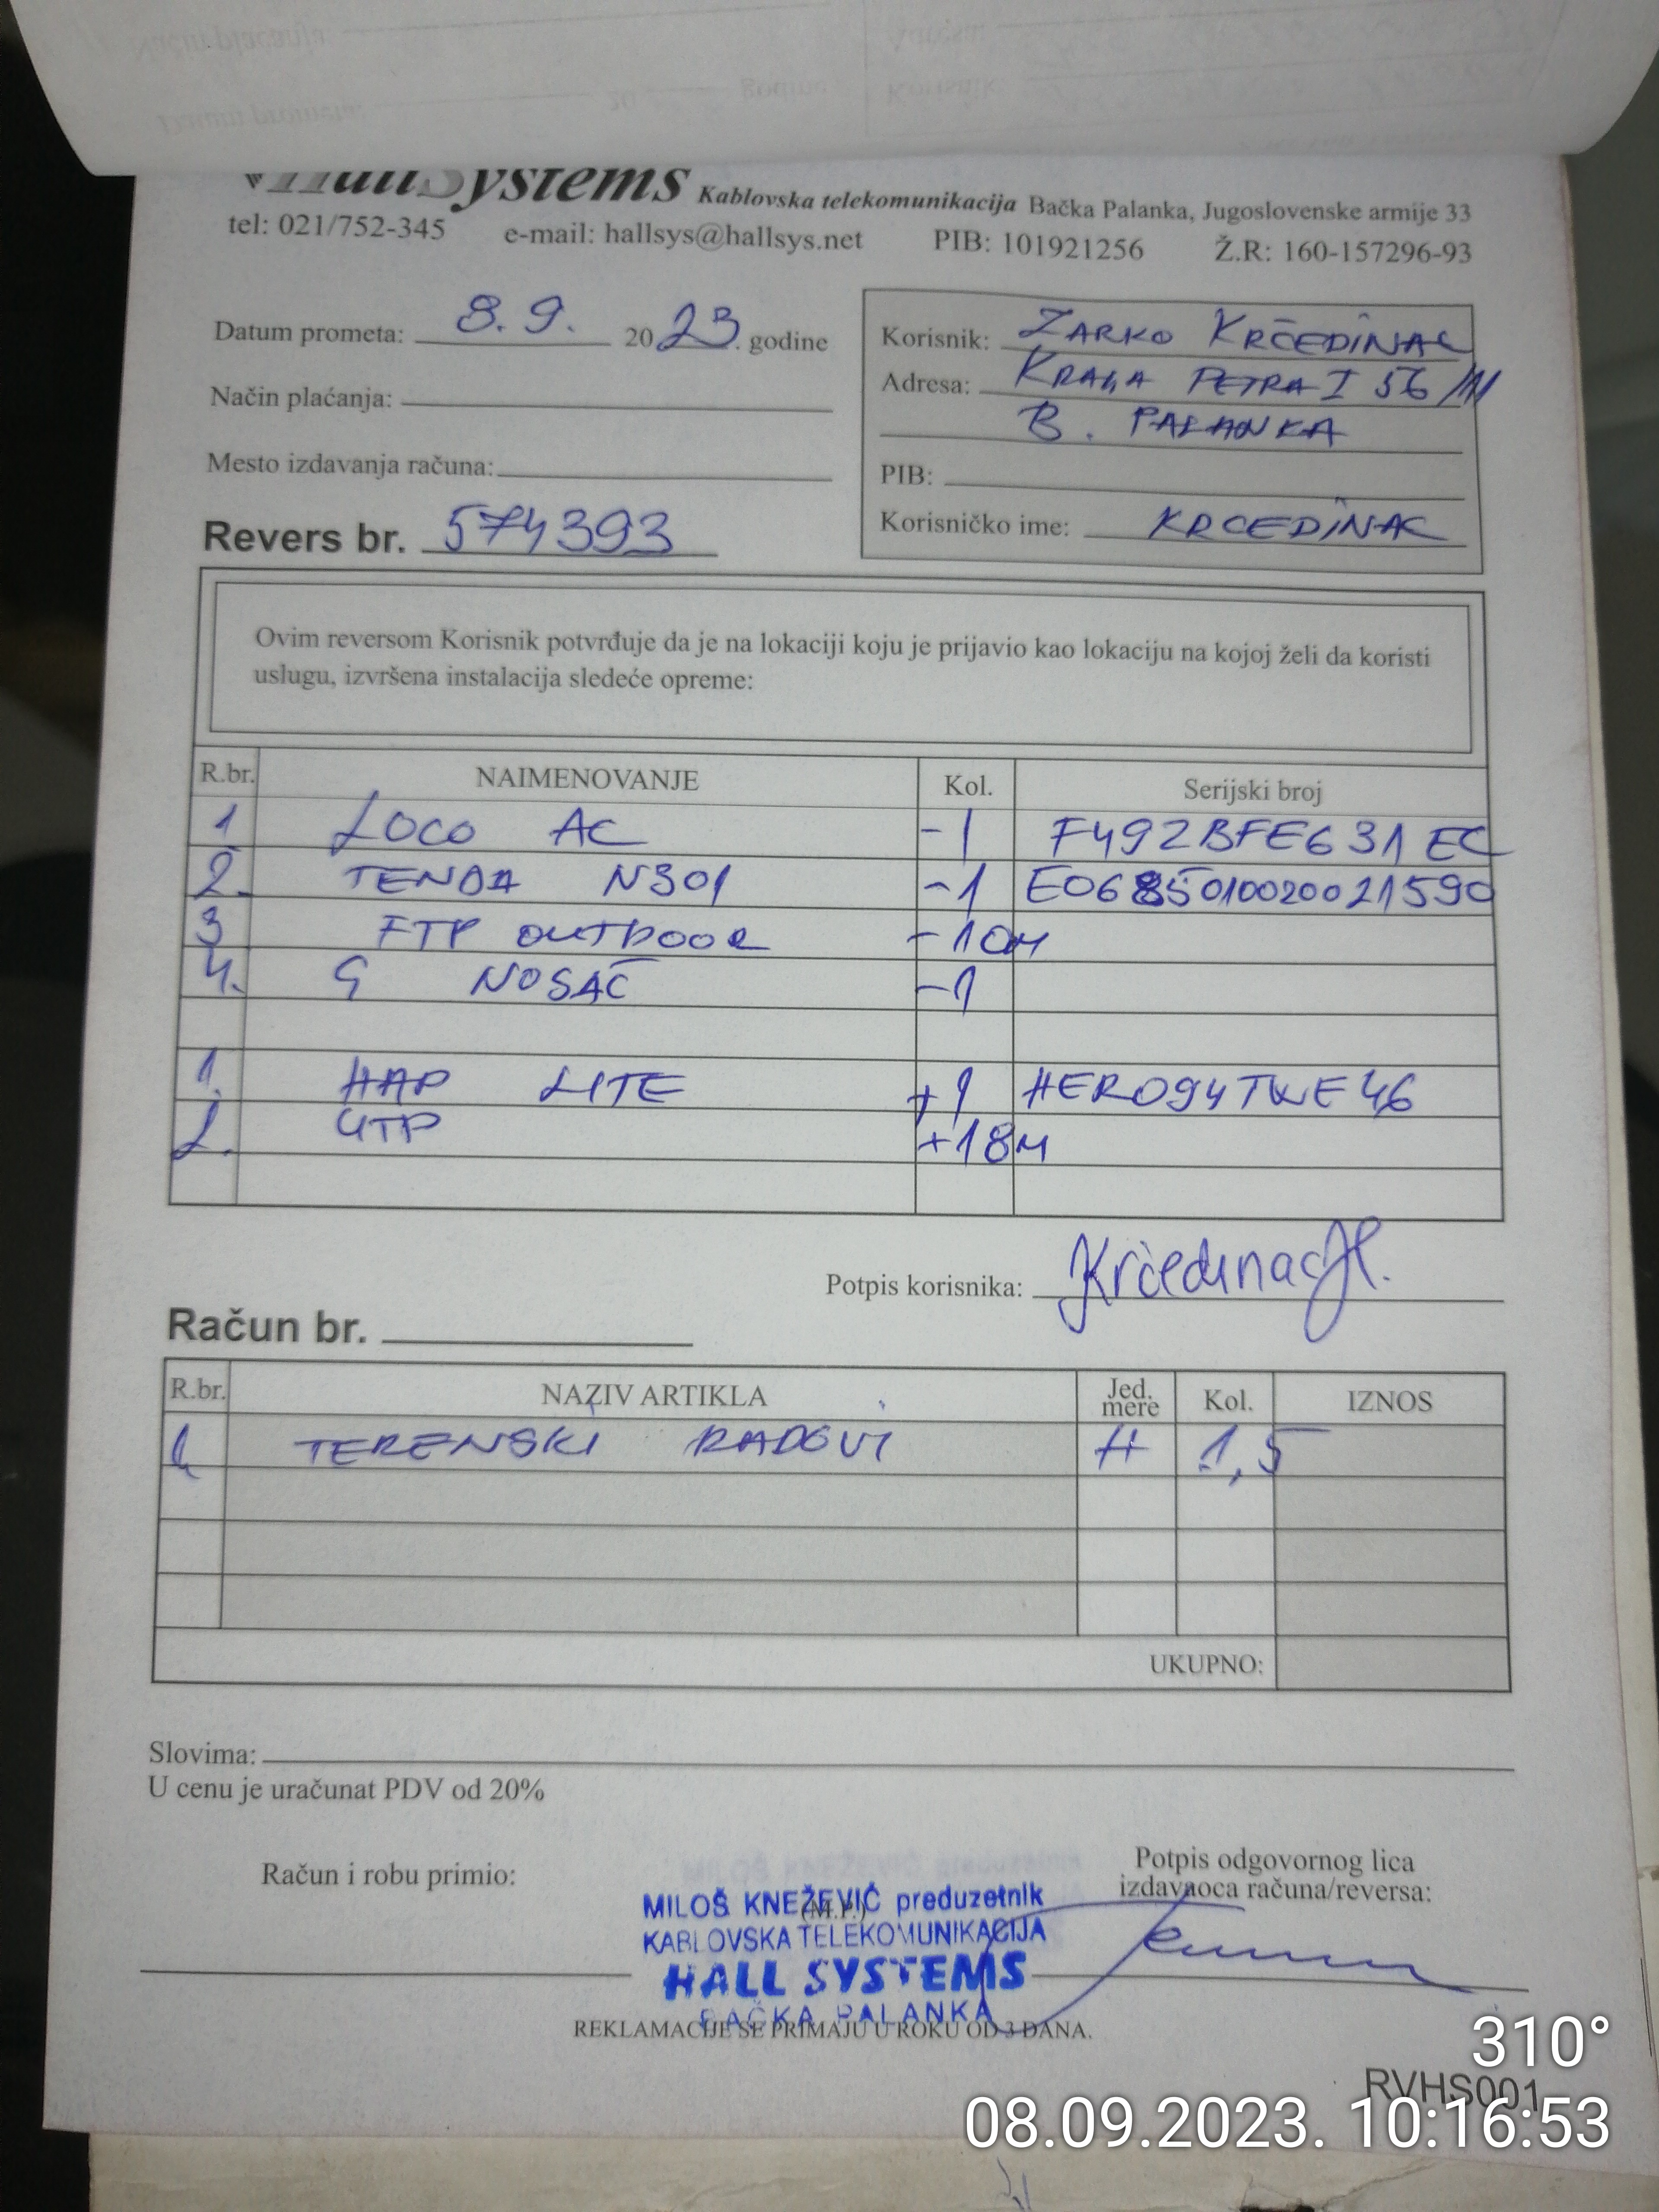 HallSystems Kablovska telekomunikacija Bačka Palanka, Jugoslovenske armije 33
tel: 021/752-345 e-mail: hallsys@hallsys.net PIB: 101921256 Ž.R: 160-157296-93
Datum prometa: 8. 9. 2023. godine
Način plaćanja:
Mesto izdavanja računa:
Revers br. 574393
Korisnik: ZARKO KRČEDINAC
Adresa: KRALA PETRA I 56/11
B. PALANKA
PIB:
Korisničko ime: KRCEDINAC
Ovim reversom Korisnik potvrđuje da je na lokaciji koju je prijavio kao lokaciju na kojoj želi da koristi
uslugu, izvršena instalacija sledeće opreme:
R.br. NAIMENOVANJE Kol. Serijski broj
1 LOCO AC -1 F492BFE631EC
2. TENDA N301 -1 E0685010020021590
3 FTP OUTDOOR -10M
4. G NOSAČ -1
1. HAP LITE +1 HER094TWE46
2. UTP +18M
Potpis korisnika: Krčedinac
Račun br.
R.br. NAZIV ARTIKLA Jed. mere Kol. IZNOS
1. TERENSKI RADOVI H 1,5
UKUPNO:
Slovima:
U cenu je uračunat PDV od 20%
Račun i robu primio:
(M.P.)
Potpis odgovornog lica
izdavaoca računa/reversa:
MILOŠ KNEŽEVIĆ preduzetnik
KABLOVSKA TELEKOMUNIKACIJA
HALL SYSTEMS
BAČKA PALANKA
REKLAMACIJE SE PRIMAJU U ROKU OD 3 DANA.
310°
RVHS001
08.09.2023. 10:16:53